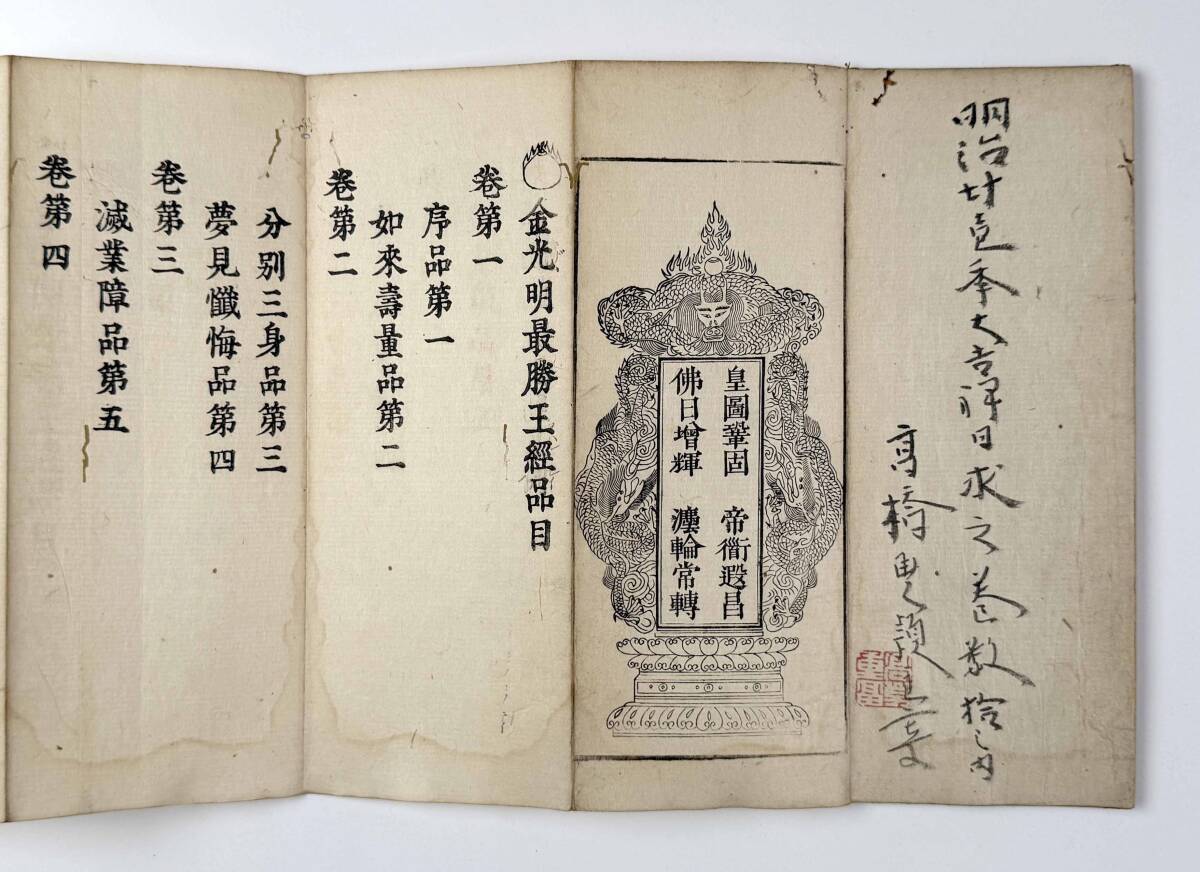 明治廿壱季大吉祥日求之巻数拾之内
高橋
皇圖鞏固 帝衜遐昌
佛日增輝 灋輪常轉
金光明最勝王經品目
卷第一
序品第一
如來壽量品第二
卷第二
分別三身品第三
夢見懺悔品第四
卷第三
滅業障品第五
卷第四